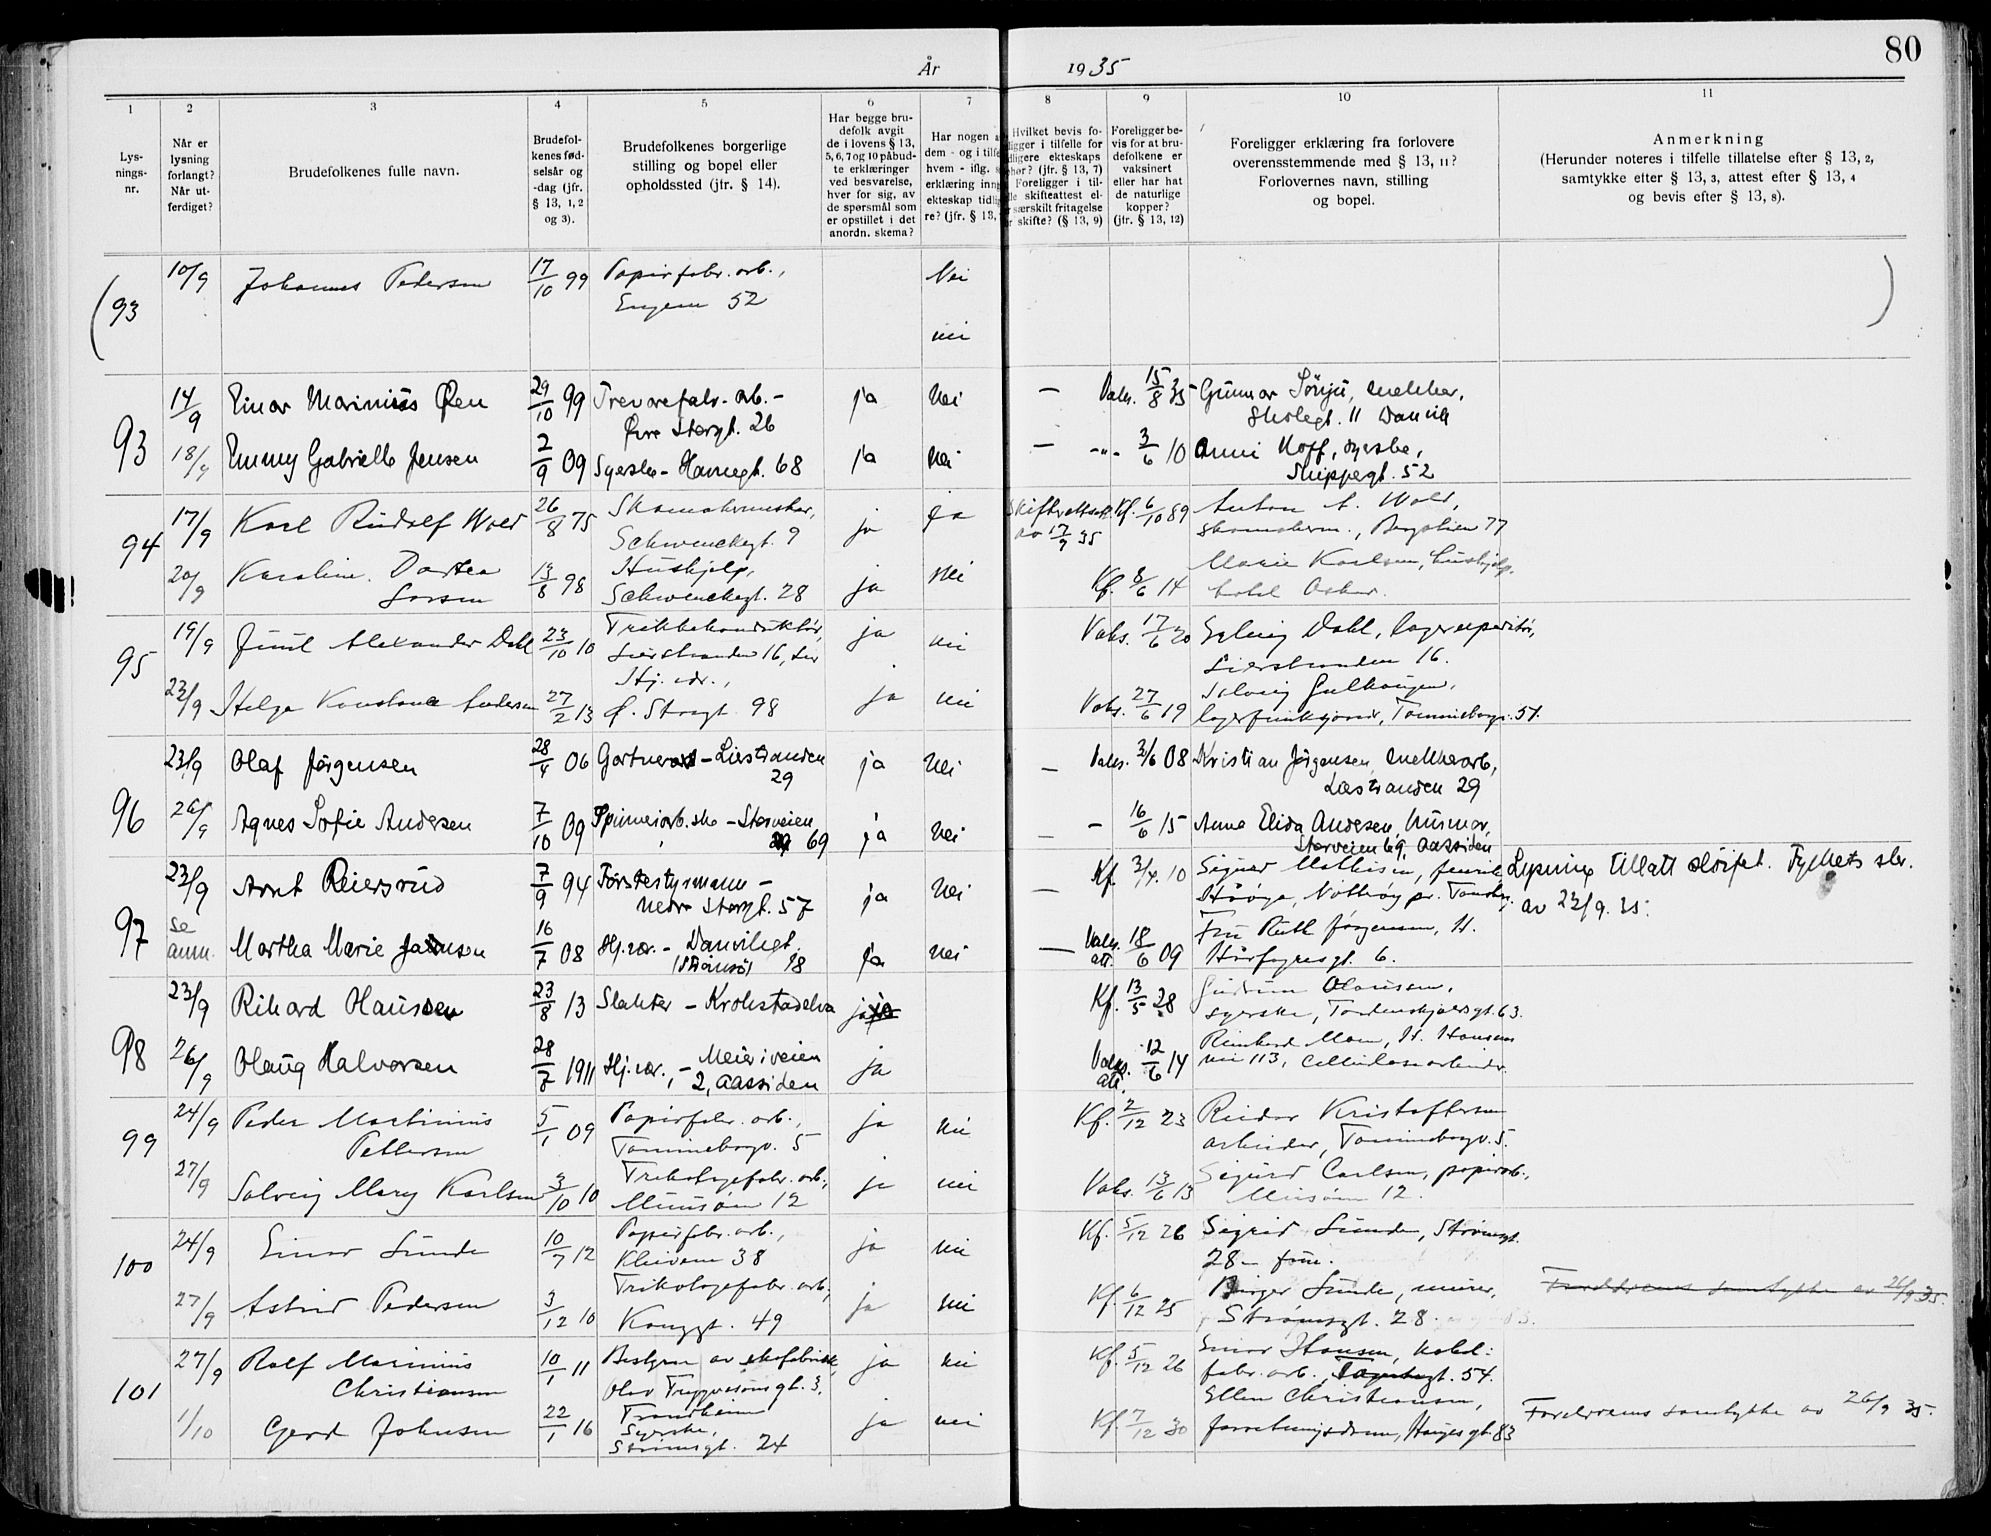 80
År 1935
1 2 3 4 5 6 7 8 9 10 11
Lys-
nings-
nr.
Når er
lysning
forlangt?
Når ut-
ferdiget?
Brudefolkenes fulle navn.
Brudefol-
kenes fød-
selsår og
-dag (jfr.
§ 13, 1, 2
og 3).
Brudefolkenes borgerlige
stilling og bopel eller
opholdssted (jfr. § 14).
Har begge bru-
defolk avgit
de i lovens § 13,
5, 6, 7 og 10 påbud-
te erklæringer
ved besvarelse,
hver for sig, av
de spørsmål som
er opstillet i det
anordn. skema?
Har nogen a
dem - og i tilfe
hvem - iflg. s
erklæring inng
ekteskap tidlig
re? (jfr. § 13,
Hvilket bevis fo-
ligger i tilfelle for
dligere ekteskaps
phør? (jfr. § 13, 7)
Foreligger i til-
lle skifteattest el-
r særskilt fritagelse
or skifte? (§ 13, 9)
Foreligger be-
vis for at bru-
defolkene er
vaksinert
eller har hat
de naturlige
kopper?
(jfr. § 13, 12)
Foreligger erklæring fra forlovere
overensstemmende med § 13, 11?
Forlovernes navn, stilling
og bopel.
Anmerkning
(Herunder noteres i tilfelle tillatelse efter § 13, 2,
samtykke efter § 13, 3, attest efter § 13, 4
og bevis efter § 13, 8).
(93 10/9 Johannes Pedersen 17/10 99 Papirfabr. arb., Nei )
Engene 52
nei
93 14/9 Einar Marinius Øen 29/10 99 Trevarefabr. arb. - ja Nei — Vaks. 15/8 35 Gunnar Sönju, mekker,
Øvre Storgt. 26 Skolegt. 11 Danvik
18/9 Emmy Gabrielle Jensen 2/9 09 Syerske - Havnegt. 68 ja Nei — -"- 3/6 10 Anni Hoff, syerske,
Skippergt. 52
94 17/9 Karl Rudolf Wold 26/8 75 Skomakermester, ja ja Skifteattest Kf. 6/10 89 Anton A. Wold,
Schwenckegt. 9 av 17/9 35 skomakerm., Bergstien 77
20/9 Karoline Dortea 13/8 98 Hushjelp, ja Nei Kf. 8/6 14 Marie Karlsen, hushjelp,
Larsen Schwenckegt. 28 hotel Oskar.
95 19/9 Juul Alexander Dahl 23/10 10 Trikkekonduktör, ja nei Vaks. 17/6 20 Solveig Dahl, lagerexpeditör,
Lierstranden 16, Lier Lierstranden 16.
23/9 Helga Konstance Andersen 27/2 13 Hj. vær., ja nei Vaks. 27/6 19 Solveig Gulhaugen,
Ø. Storgt. 98 lagerfunksjonær, Tomineborgv. 57.
96 23/9 Olaf Jörgensen 28/4 06 Gartner - Lierstranden ja Nei — Vaks. 3/6 08 Kristian Jörgensen, mekkarb,
29 Lierstranden 29
26/9 Agnes Sofie Andersen 7/10 09 Spinneriarb.ske - Storveien ja Nei — - 16/6 15 Anna Elida Andesen, husmor,
69 Storveien 69, Aassiden
97 23/9 Arnt Reiersrud 7/9 94 Förstestyrmann - ja Nei — Kf. 3/4. 10 Sigurd Mathisen,
Nedre Storgt. 57 Lysning tillatt slöifet. Fylkets skr.
av 23/9. 35.
se
anm. Martha Marie Jansen 16/7 08 Hj.vær. - Danvikgt. ja Nei — Vaks. att. 18/6 09 Fru Ruth Jörgensen, H.
(Strömsö) 18 Hårfagresgt. 6.
98 23/9 Rikard Hansen 23/8 13 Slakter - Krokstadelva ja Kf. 13/5 28 Gudrun Olaussen,
syerske, Tordenskjoldsgt. 63.
26/9 Olaug Halvorsen 28/7 1911 Hj.vær., - Meieriveien ja Vaks. att. 12/6 14 Reinhard Moen, H. Hansens
2, Aassiden vei 113, cellulosearbeider.
99 24/9 Peder Martinius 5/1 09 Papirfabr. arb., ja nei Kf. 2/12 23 Reidar Kristoffersen
Pettersen Tomineborgv. 5 arbeider, Tomineborgv. 5.
27/9 Solveig Mary Karlsen 3/10 10 Trikotagefabr. arb., ja nei Vaks. 13/6 13 Sigurd Carlsen, papirarb.,
Muusöen 12 Muusöen 12.
100 24/9 Einar Sunde 10/7 12 Papirfabr. arb., ja nei Kf. 5/12 26 Sigrid Sunde, Strömsgt.
Kleivene 38 28 - frue.
27/9 Astrid Pedersen 3/12 10 Trikotagefabr. arb., ja nei Kf. 6/12 25 Birger Sunde, murer, Foreldrenes samtykke av 26/9 35.
Konggt. 49 Strømsgt. 28.
101 27/9 Rolf Marinius 10/1 11 Bestyrer av skofabrikk, ja nei Kf. 5/12 26 Einar Hansen,
Christiansen Olav Tryggvasonsgt. 3, fabr. arb., gt. 54.
Trondheim
1/10 Gerd Johnsen 22/1 16 Syerske, ja nei Kf. 7/12 30 Ellen Christiansen, Foreldrenes samtykke av 26/9 35.
Strömsgt. 24 forretningsdame, Haugesgt. 83